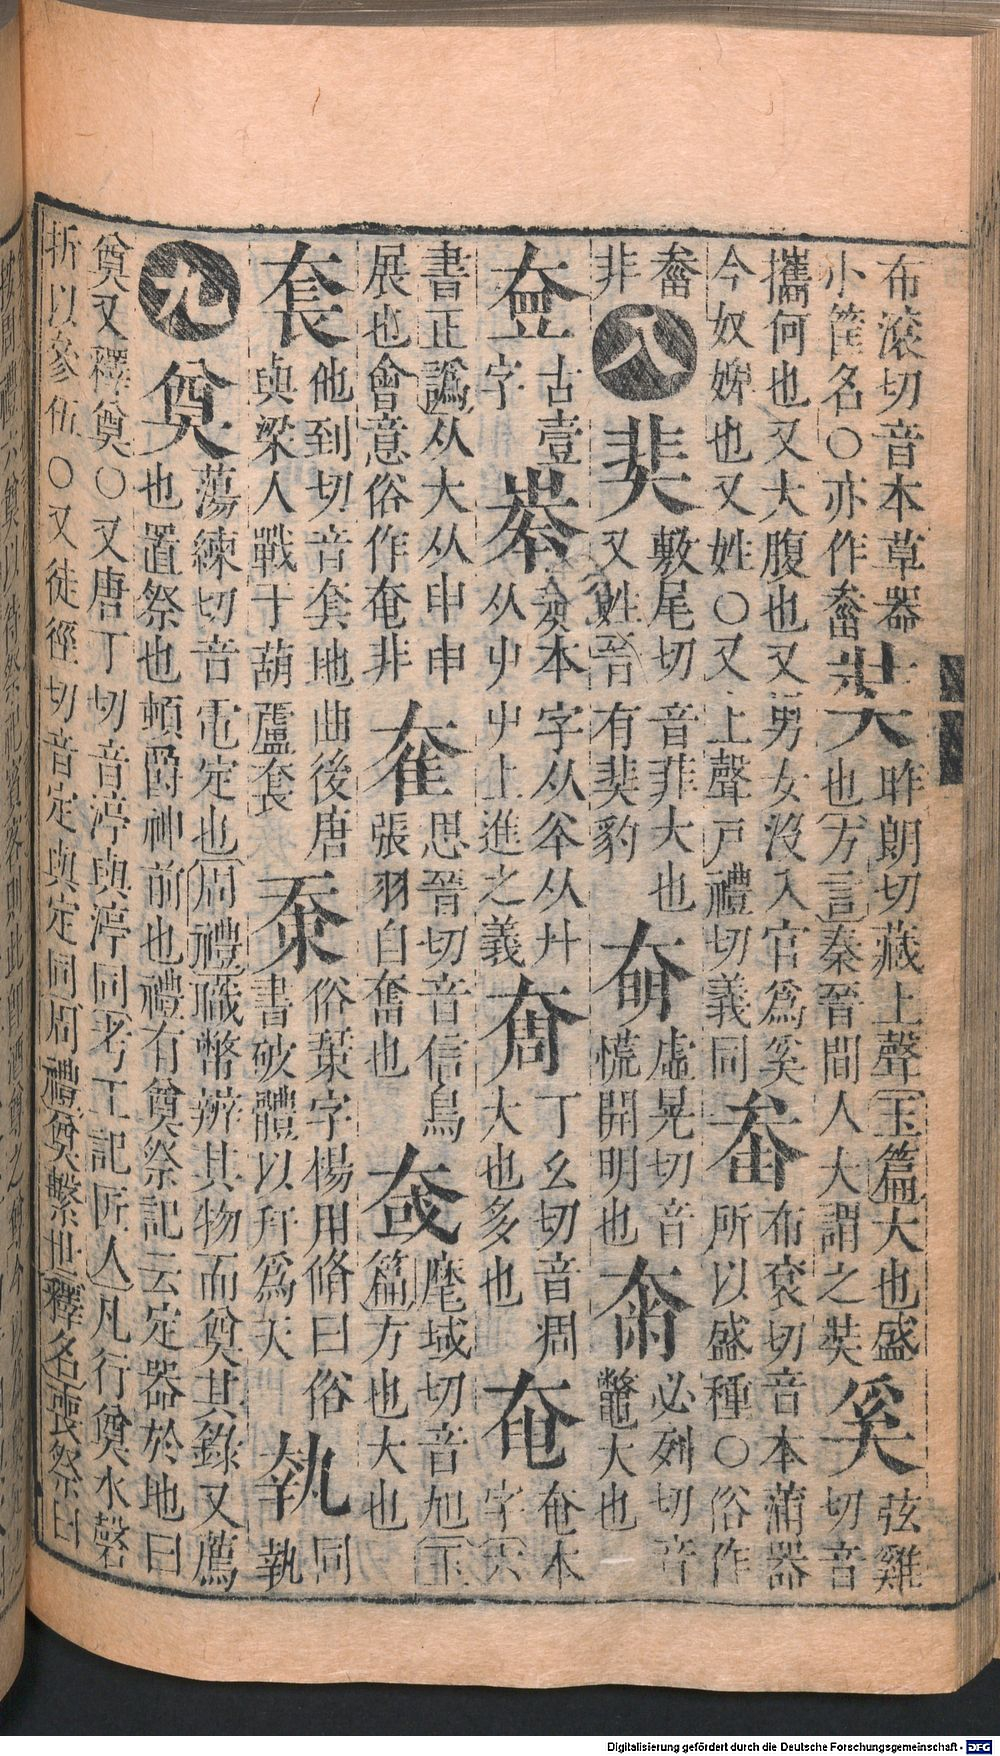 布滚切音本草器
小筐名○亦作畚
奘
昨朗切藏上聲玉篇大也盛
也方言秦晉間人大謂之奘
奚
弦雞切音
攜何也又大腹也又男女沒入官爲奚
今奴婢也又姓○又上聲戸禮切義同
畚
布衮切音本蒲器所以盛種○俗作
非
八
敷尾切音菲大也
又姓晉有奜豹
虛晃切音
慌開明也
必列切音
鼈大也
古壹字
本字从
从屮屮上進之義
奝
丁幺切音凋
大也多也
奄
奄本字
書正譌从大从申申
展也會意俗作奄非
奞
思晉切音信鳥
張羽自奮也
麾域切音旭玉
篇方也大也
套
他到切音套地曲後唐
與梁人戰于葫蘆套
俗葉字楊用脩曰俗
書破體以
爲天
執
同執
九
奠
蕩練切音電定也周禮職幣辨其物而奠其錄又薦
也置祭也頓爵神前也禮有奠祭記云定器於地曰
奠又釋奠○又唐丁切音渟與渟同考工記匠人凡行奠水磬
折以參伍○又徒徑切音定與定同周禮奠繫世釋名喪祭曰
Digitalisierung gefördert durch die Deutsche Forschungsgemeinschaft - DFG